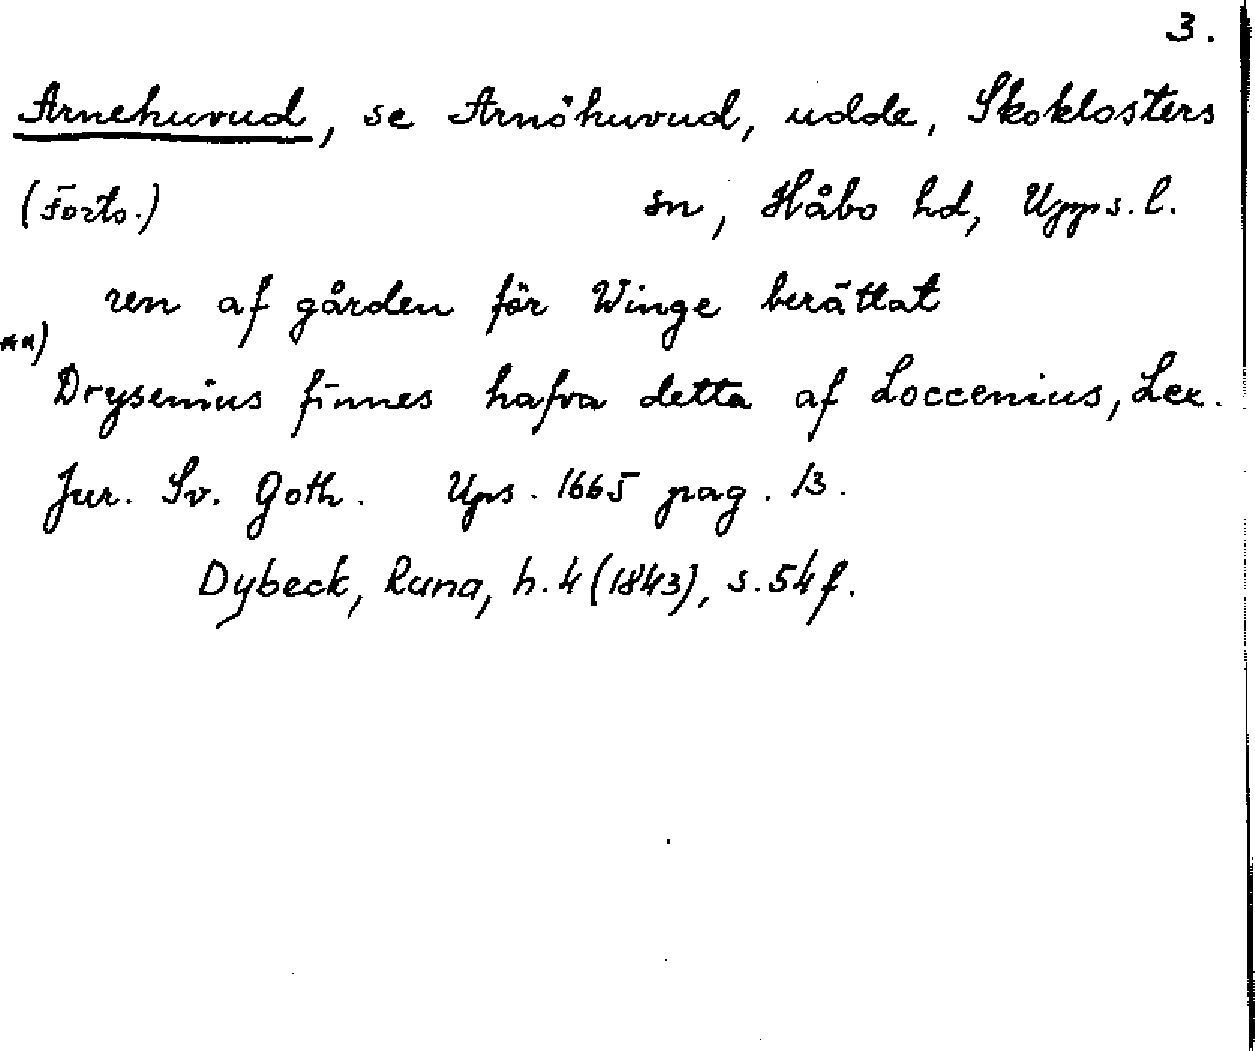 3.
Arnehuvud, se Arnöhuvud, udde, Skoklosters
(Forts.) sn, Håbo hd, Upps. l.
ren af gården för Winge berättat
**)
Drysenius finnes hafva detta af Loccenius, Lex.
Jur. Sv. Goth. Ups. 1665 pag. 13.
Dybeck, Runa, h. 4 (1843), s. 54 f.